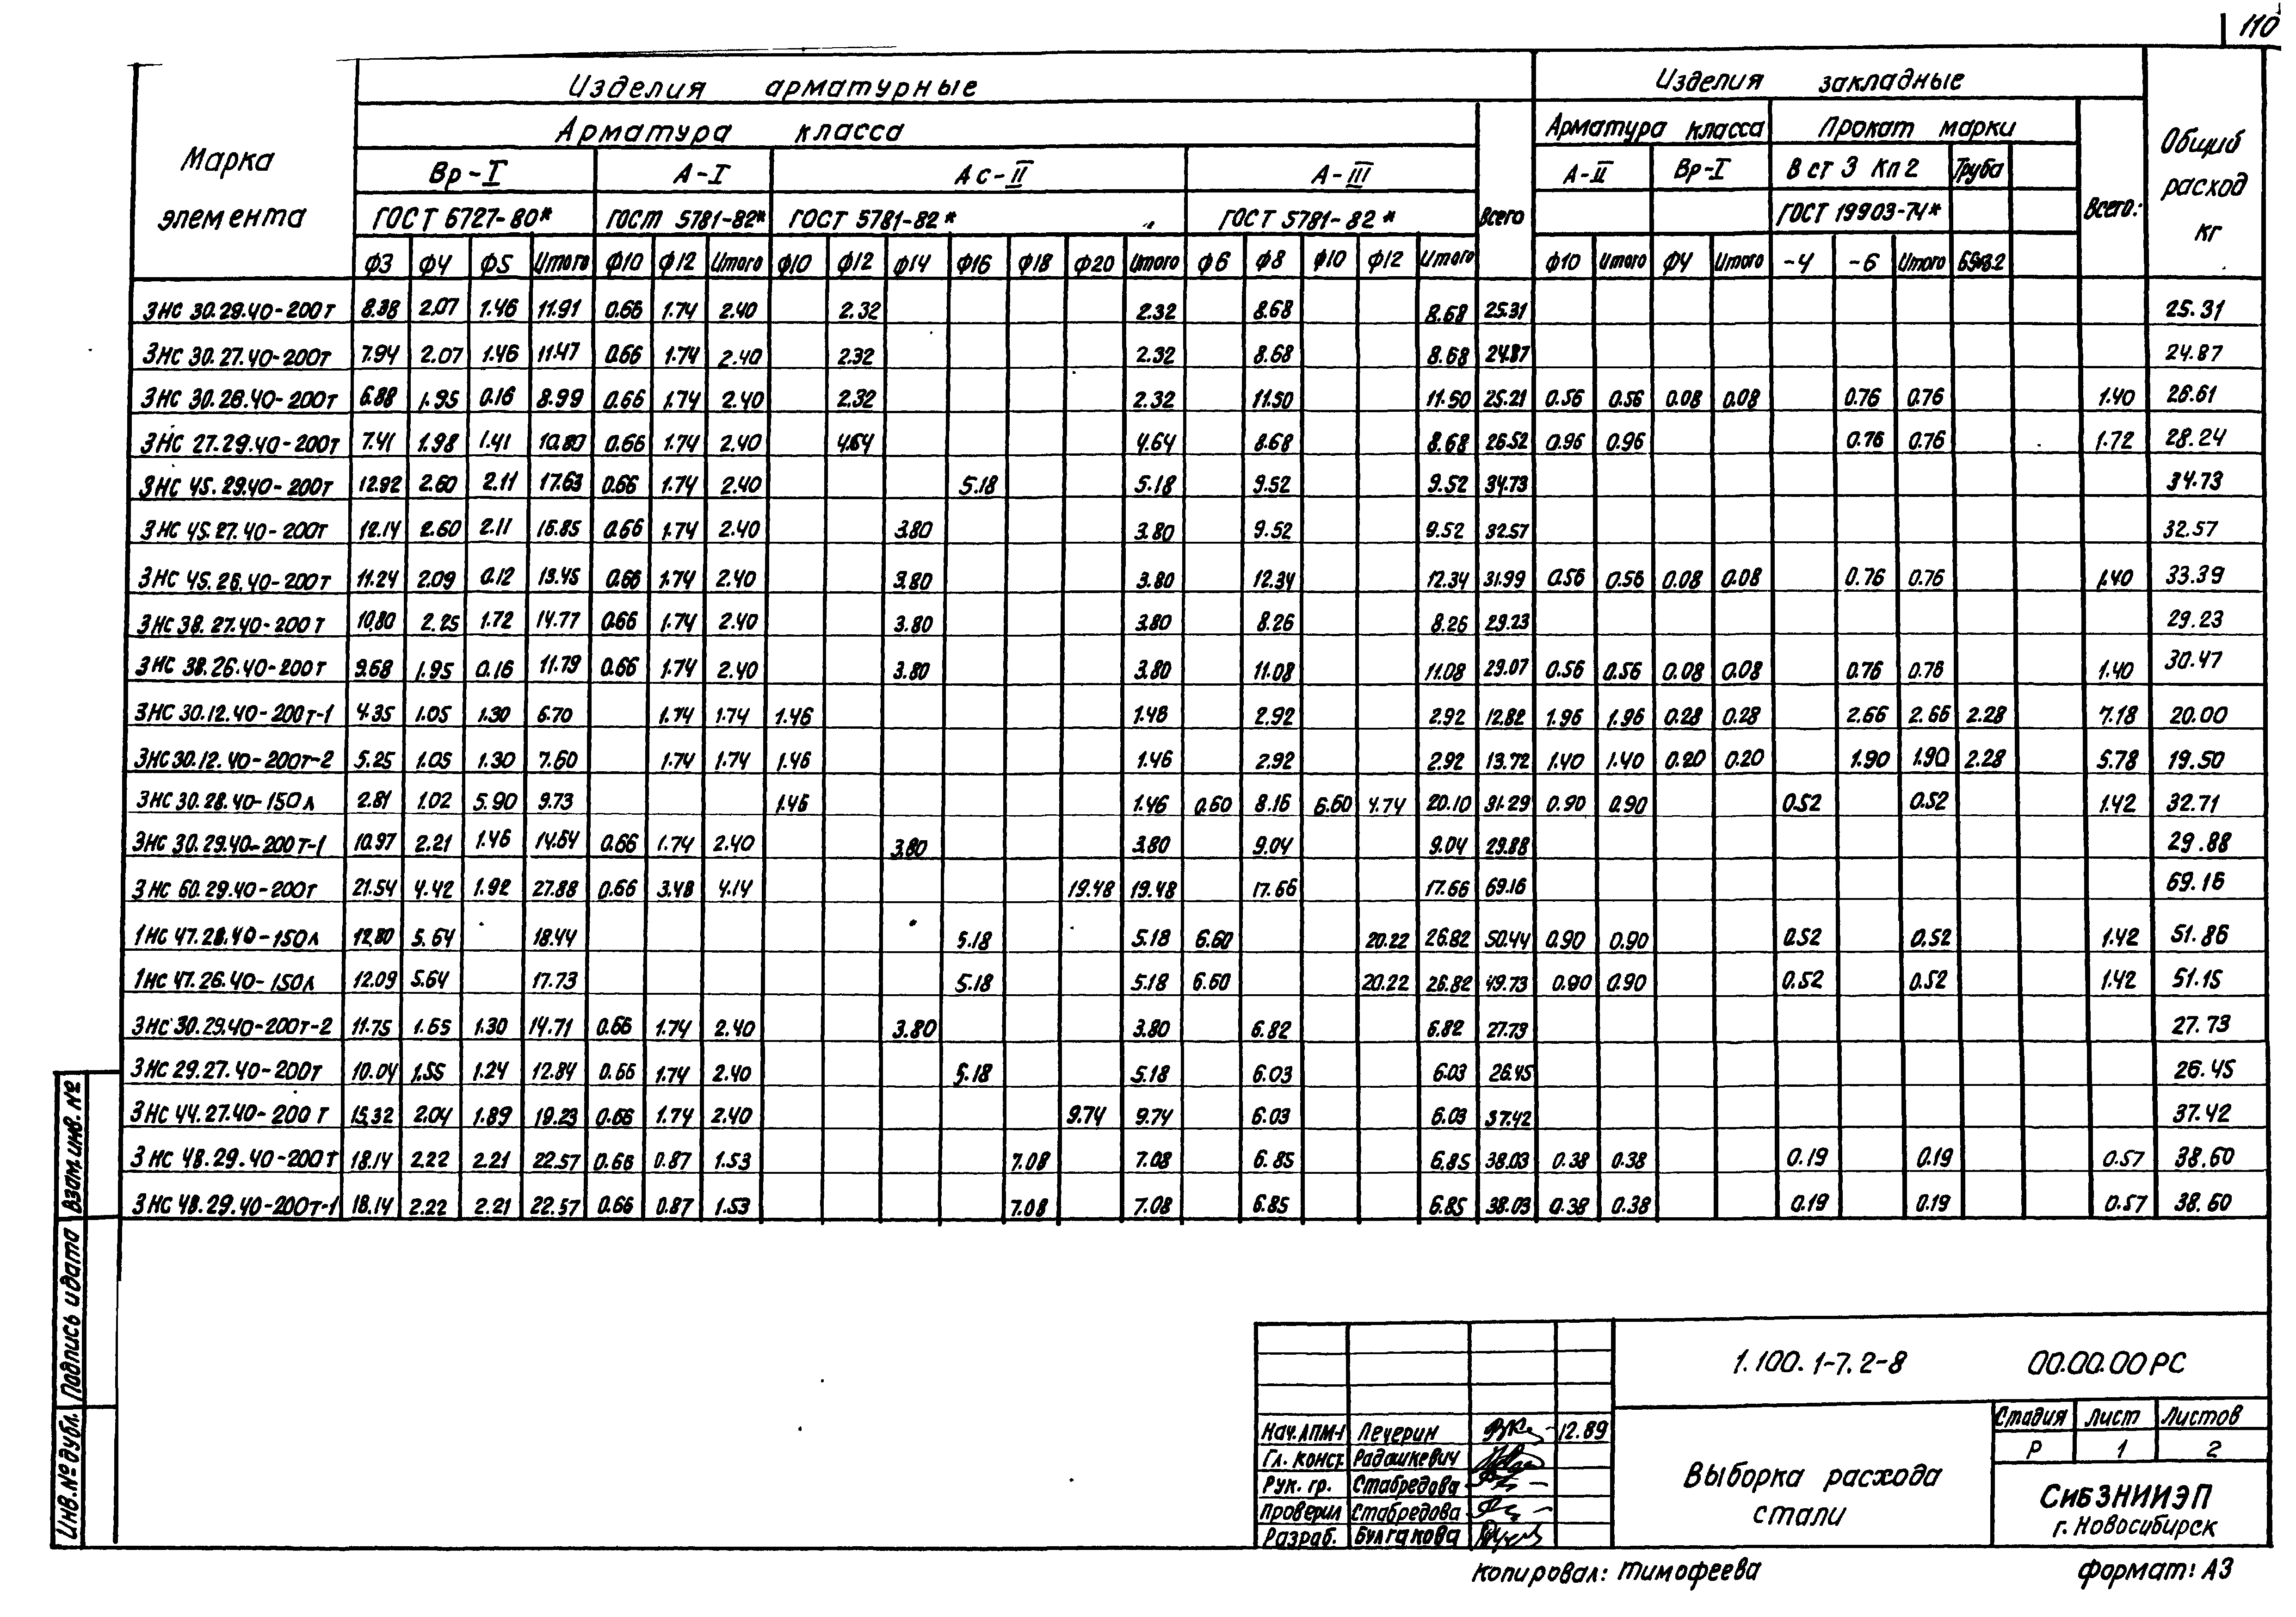 110
Изделия арматурные
Изделия закладные
Марка элемента
Арматура класса
Всего
Арматура класса
Прокат марки
Всего:
Общий расход кг
Вр-I
А-I
Ас-II
А-III
А-II
Вр-I
Вст3 Кп2
Труба
ГОСТ 6727-80*
ГОСТ 5781-82*
ГОСТ 5781-82*
ГОСТ 5781-82*
ГОСТ 19903-74*
Ф3 Ф4 Ф5 Итого Ф10 Ф12 Итого Ф10 Ф12 Ф14 Ф16 Ф18 Ф20 Итого Ф6 Ф8 Ф10 Ф12 Итого Ф10 Итого Ф4 Итого -4 -6 Итого
3НС 30.29.40-200т 8.38 2.07 1.46 11.91 0.66 1.74 2.40 2.32 2.32 8.68 8.68 25.31 25.31
3НС 30.27.40-200т 7.94 2.07 1.46 11.47 0.66 1.74 2.40 2.32 2.32 8.68 8.68 24.87 24.87
3НС 30.26.40-200т 6.88 1.95 0.16 8.99 0.66 1.74 2.40 2.32 2.32 11.50 11.50 25.21 0.56 0.56 0.08 0.08 0.76 0.76 1.40 26.61
3НС 27.29.40-200т 7.41 1.98 1.41 10.80 0.66 1.74 2.40 4.64 4.64 8.68 8.68 26.52 0.96 0.96 0.76 0.76 1.72 28.24
3НС 45.29.40-200т 12.92 2.60 2.11 17.63 0.66 1.74 2.40 5.18 5.18 9.52 9.52 34.73 34.73
3НС 45.27.40-200т 12.14 2.60 2.11 16.85 0.66 1.74 2.40 3.80 3.80 9.52 9.52 32.57 32.57
3НС 45.26.40-200т 11.24 2.09 0.12 13.45 0.66 1.74 2.40 3.80 3.80 12.34 12.34 31.99 0.56 0.56 0.08 0.08 0.76 0.76 1.40 33.39
3НС 38.27.40-200т 10.80 2.25 1.72 14.77 0.66 1.74 2.40 3.80 3.80 8.26 8.26 29.23 29.23
3НС 38.26.40-200т 9.68 1.95 0.16 11.79 0.66 1.74 2.40 3.80 3.80 11.08 11.08 29.07 0.56 0.56 0.08 0.08 0.76 0.76 1.40 30.47
3НС 30.12.40-200т-1 4.35 1.05 1.30 6.70 1.74 1.74 1.46 1.46 2.92 2.92 12.82 1.96 1.96 0.28 0.28 2.66 2.66 2.28 7.18 20.00
3НС 30.12.40-200т-2 5.25 1.05 1.30 7.60 1.74 1.74 1.46 1.46 2.92 2.92 13.72 1.40 1.40 0.20 0.20 1.90 1.90 2.28 5.78 19.50
3НС 30.28.40-150л 2.81 1.02 5.90 9.73 1.46 1.46 0.60 8.16 6.60 4.74 20.10 31.29 0.90 0.90 0.52 0.52 1.42 32.71
3НС 30.29.40-200т-1 10.97 2.21 1.46 14.64 0.66 1.74 2.40 3.80 3.80 9.04 9.04 29.88 29.88
3НС 60.29.40-200т 21.54 4.42 1.92 27.88 0.66 3.48 4.14 19.48 19.48 17.66 17.66 69.16 69.16
1НС 47.28.40-150л 12.80 5.64 18.44 5.18 5.18 6.60 20.22 26.82 50.44 0.90 0.90 0.52 0.52 1.42 51.86
1НС 47.26.40-150л 12.09 5.64 17.73 5.18 5.18 6.60 20.22 26.82 49.73 0.90 0.90 0.52 0.52 1.42 51.15
3НС 30.29.40-200т-2 11.75 1.65 1.30 14.71 0.66 1.74 2.40 3.80 3.80 6.82 6.82 27.73 27.73
3НС 29.27.40-200т 10.04 1.55 1.24 12.84 0.66 1.74 2.40 5.18 5.18 6.03 6.03 26.45 26.45
3НС 44.27.40-200т 15.32 2.04 1.89 19.23 0.66 1.74 2.40 9.74 9.74 6.03 6.03 37.42 37.42
3НС 48.29.40-200т 18.14 2.22 2.21 22.57 0.66 0.87 1.53 7.08 7.08 6.85 6.85 38.03 0.38 0.38 0.19 0.19 0.57 38.60
3НС 48.29.40-200т-1 18.14 2.22 2.21 22.57 0.66 0.87 1.53 7.08 7.08 6.85 6.85 38.03 0.38 0.38 0.19 0.19 0.57 38.60
Взам.инв. №
Подпись и дата
Инв.№ дубл.
1.100.1-7.2-8 00.00.00РС
Нач.АПМ-1 Печерин 12.89
Гл. конст. Радашкевич
Рук. гр. Стабредова
Проверил Стабредова
Разраб. Булгакова
Выборка расхода
стали
Стадия Лист Листов
Р 1 2
СибЗНИИЭП
г. Новосибирск
Копировал: Тимофеева
Формат: А3